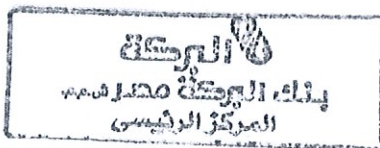 البركة
بنك البركة مصر ش.م.م
المركز الرئيسي